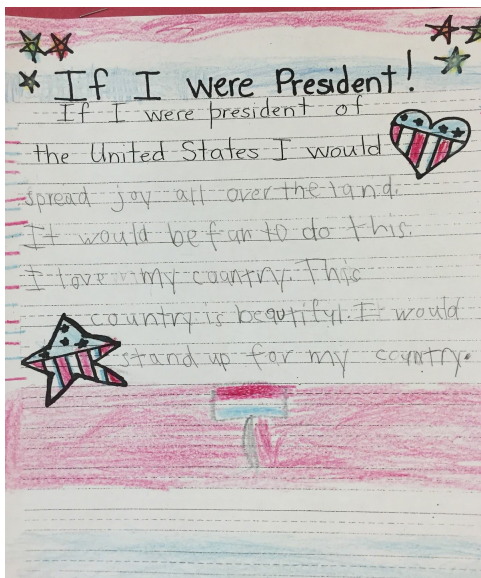 If I were President!
If I were president of
the United States I would
spread joy all over the land.
It would be fun to do this.
I love my country. This
country is beautiful. It would
stand up for my country.